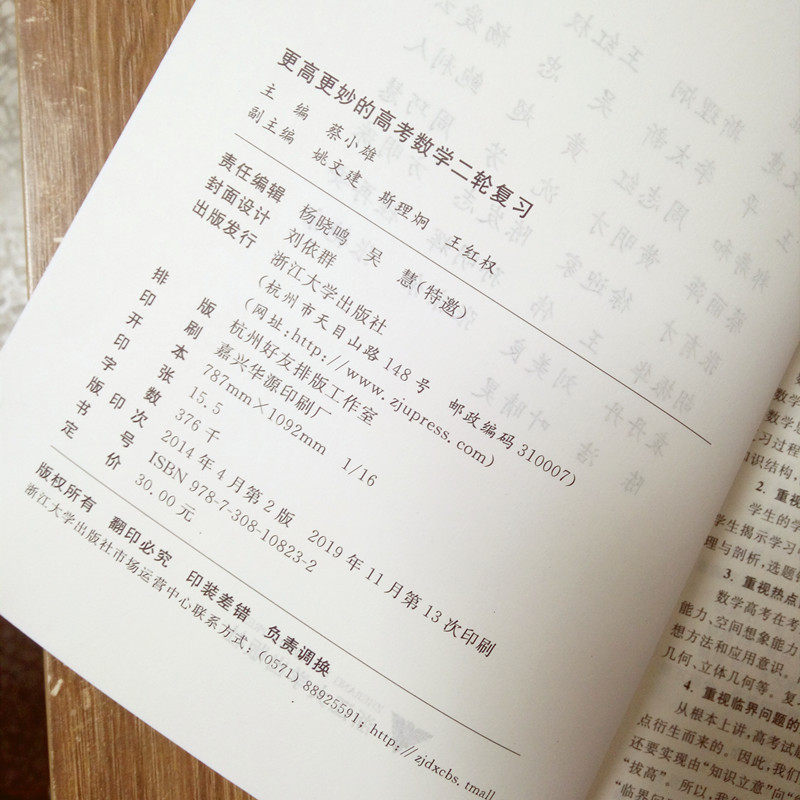 更高更妙的高考数学二轮复习
主 编 蔡小雄
副主编 姚文建 斯理炯 王红权
责任编辑 杨晓鸣 吴 慧(特邀)
封面设计 刘依群
出版发行 浙江大学出版社
(杭州市天目山路148号 邮政编码310007)
(网址:http://www.zjupress.com)
排 版 杭州好友排版工作室
印 刷 嘉兴华源印刷厂
开 本 787mm×1092mm 1/16
印 张 15.5
字 数 376千
版 印 次 2014年4月第2版 2019年11月第13次印刷
书 号 ISBN 978-7-308-10823-2
定 价 30.00元
版权所有 翻印必究 印装差错 负责调换
浙江大学出版社市场运营中心联系方式:(0571)88925591;http://zjdxcbs.tmall
数学
数学思
习过程
知识结构,
2. 重视
学生的学
学生揭示学习
理与剖析,选题
3. 重视热点
数学高考在考
能力、空间想象能力
想方法和应用意识。
几何、立体几何等。复
4. 重视临界问题的
从根本上讲,高考试
点衍生而来的。因此,我们
还要实现由“知识立意”向“
“拔高”。所以,我
“临界问